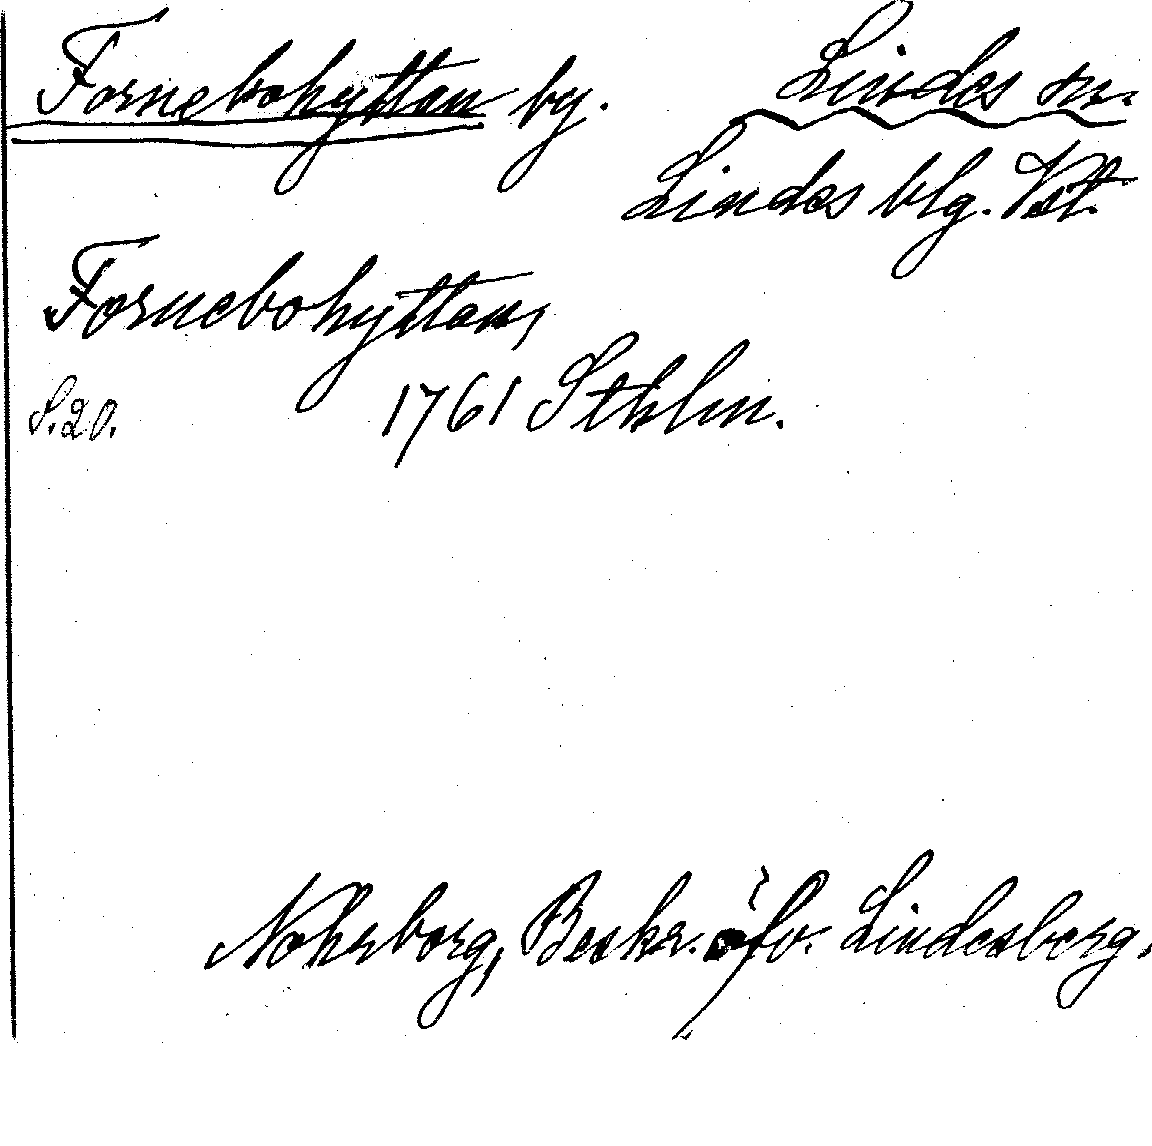 Fornebohyttan by. Lindes sn.
Lindes blg. Vst.
Fornebohyttan,
S. 20. 1761 Sthlm.
Nohrborg, Beskr. öfv. Lindesberg.